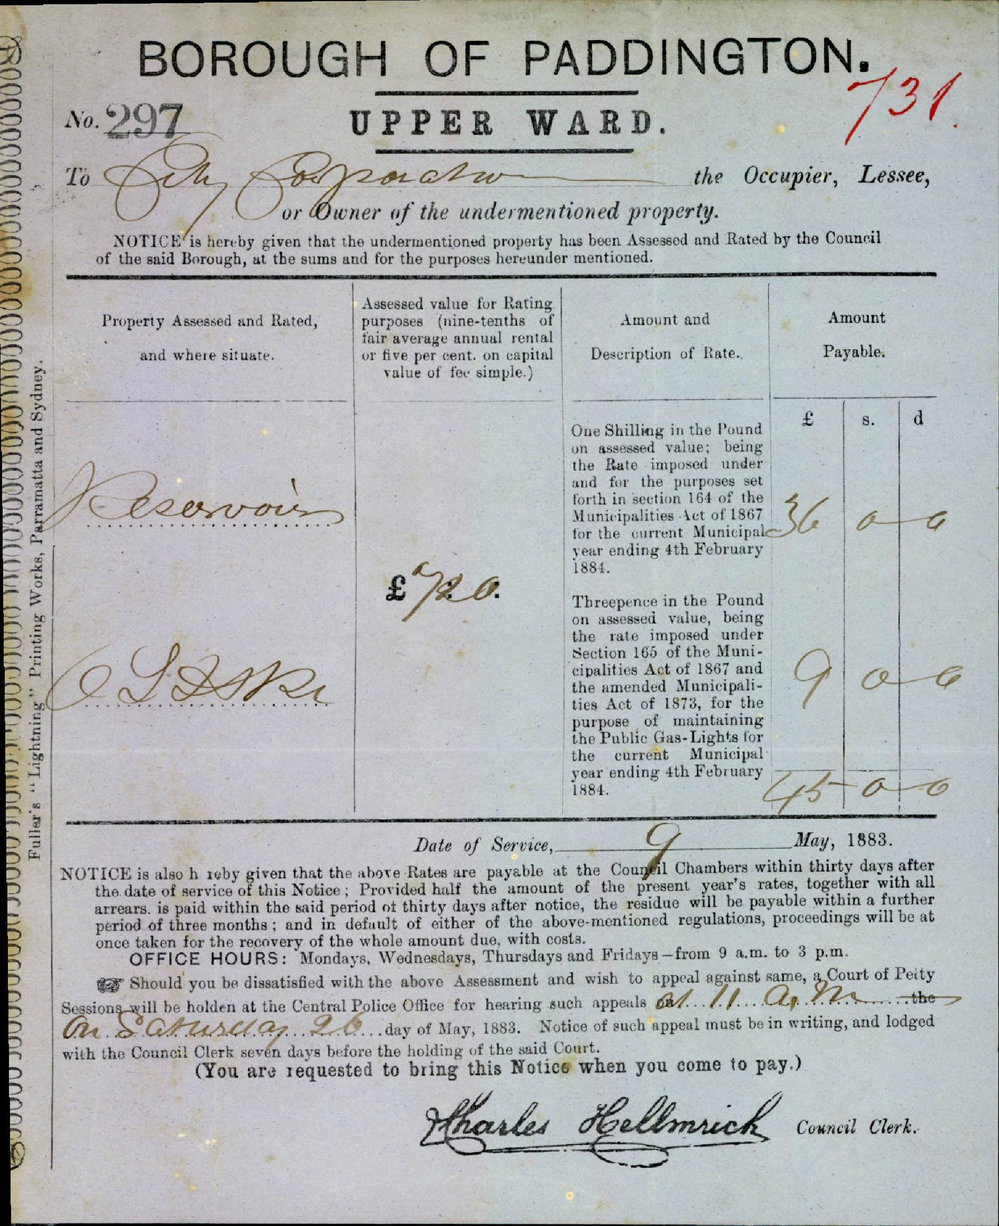 BOROUGH OF PADDINGTON.
731.
No. 297
UPPER WARD.
To City Corporation the Occupier, Lessee,
or Owner of the undermentioned property.
NOTICE is hereby given that the undermentioned property has been Assessed and Rated by the Council
of the said Borough, at the sums and for the purposes hereunder mentioned.
Property Assessed and Rated,
and where situate.
Assessed value for Rating
purposes (nine-tenths of
fair average annual rental
or five per cent. on capital
value of fee simple.)
Amount and
Description of Rate.
Amount
Payable.
£ s. d
Reservoir
£ 720.
One Shilling in the Pound
on assessed value; being
the Rate imposed under
and for the purposes set
forth in section 164 of the
Municipalities Act of 1867
for the current Municipal
year ending 4th February
1884.
36 0 0
Threepence in the Pound
on assessed value, being
the rate imposed under
Section 165 of the Muni-
cipalities Act of 1867 and
the amended Municipali-
ties Act of 1873, for the
purpose of maintaining
the Public Gas-Lights for
the current Municipal
year ending 4th February
1884.
9 0 0
45 0 0
Date of Service, 9 May, 1883.
NOTICE is also h reby given that the above Rates are payable at the Council Chambers within thirty days after
the date of service of this Notice; Provided half the amount of the present year's rates, together with all
arrears. is paid within the said period of thirty days after notice, the residue will be payable within a further
period of three months; and in default of either of the above-mentioned regulations, proceedings will be at
once taken for the recovery of the whole amount due, with costs.
OFFICE HOURS: Mondays, Wednesdays, Thursdays and Fridays—from 9 a.m. to 3 p.m.
Should you be dissatisfied with the above Assessment and wish to appeal against same, a Court of Petty
Sessions will be holden at the Central Police Office for hearing such appeals at 11 A.M. the
On Saturday 26 day of May, 1883. Notice of such appeal must be in writing, and lodged
with the Council Clerk seven days before the holding of the said Court.
(You are requested to bring this Notice when you come to pay.)
Charles Hellmrich Council Clerk.
Fuller's "Lightning" Printing Works, Parramatta and Sydney.